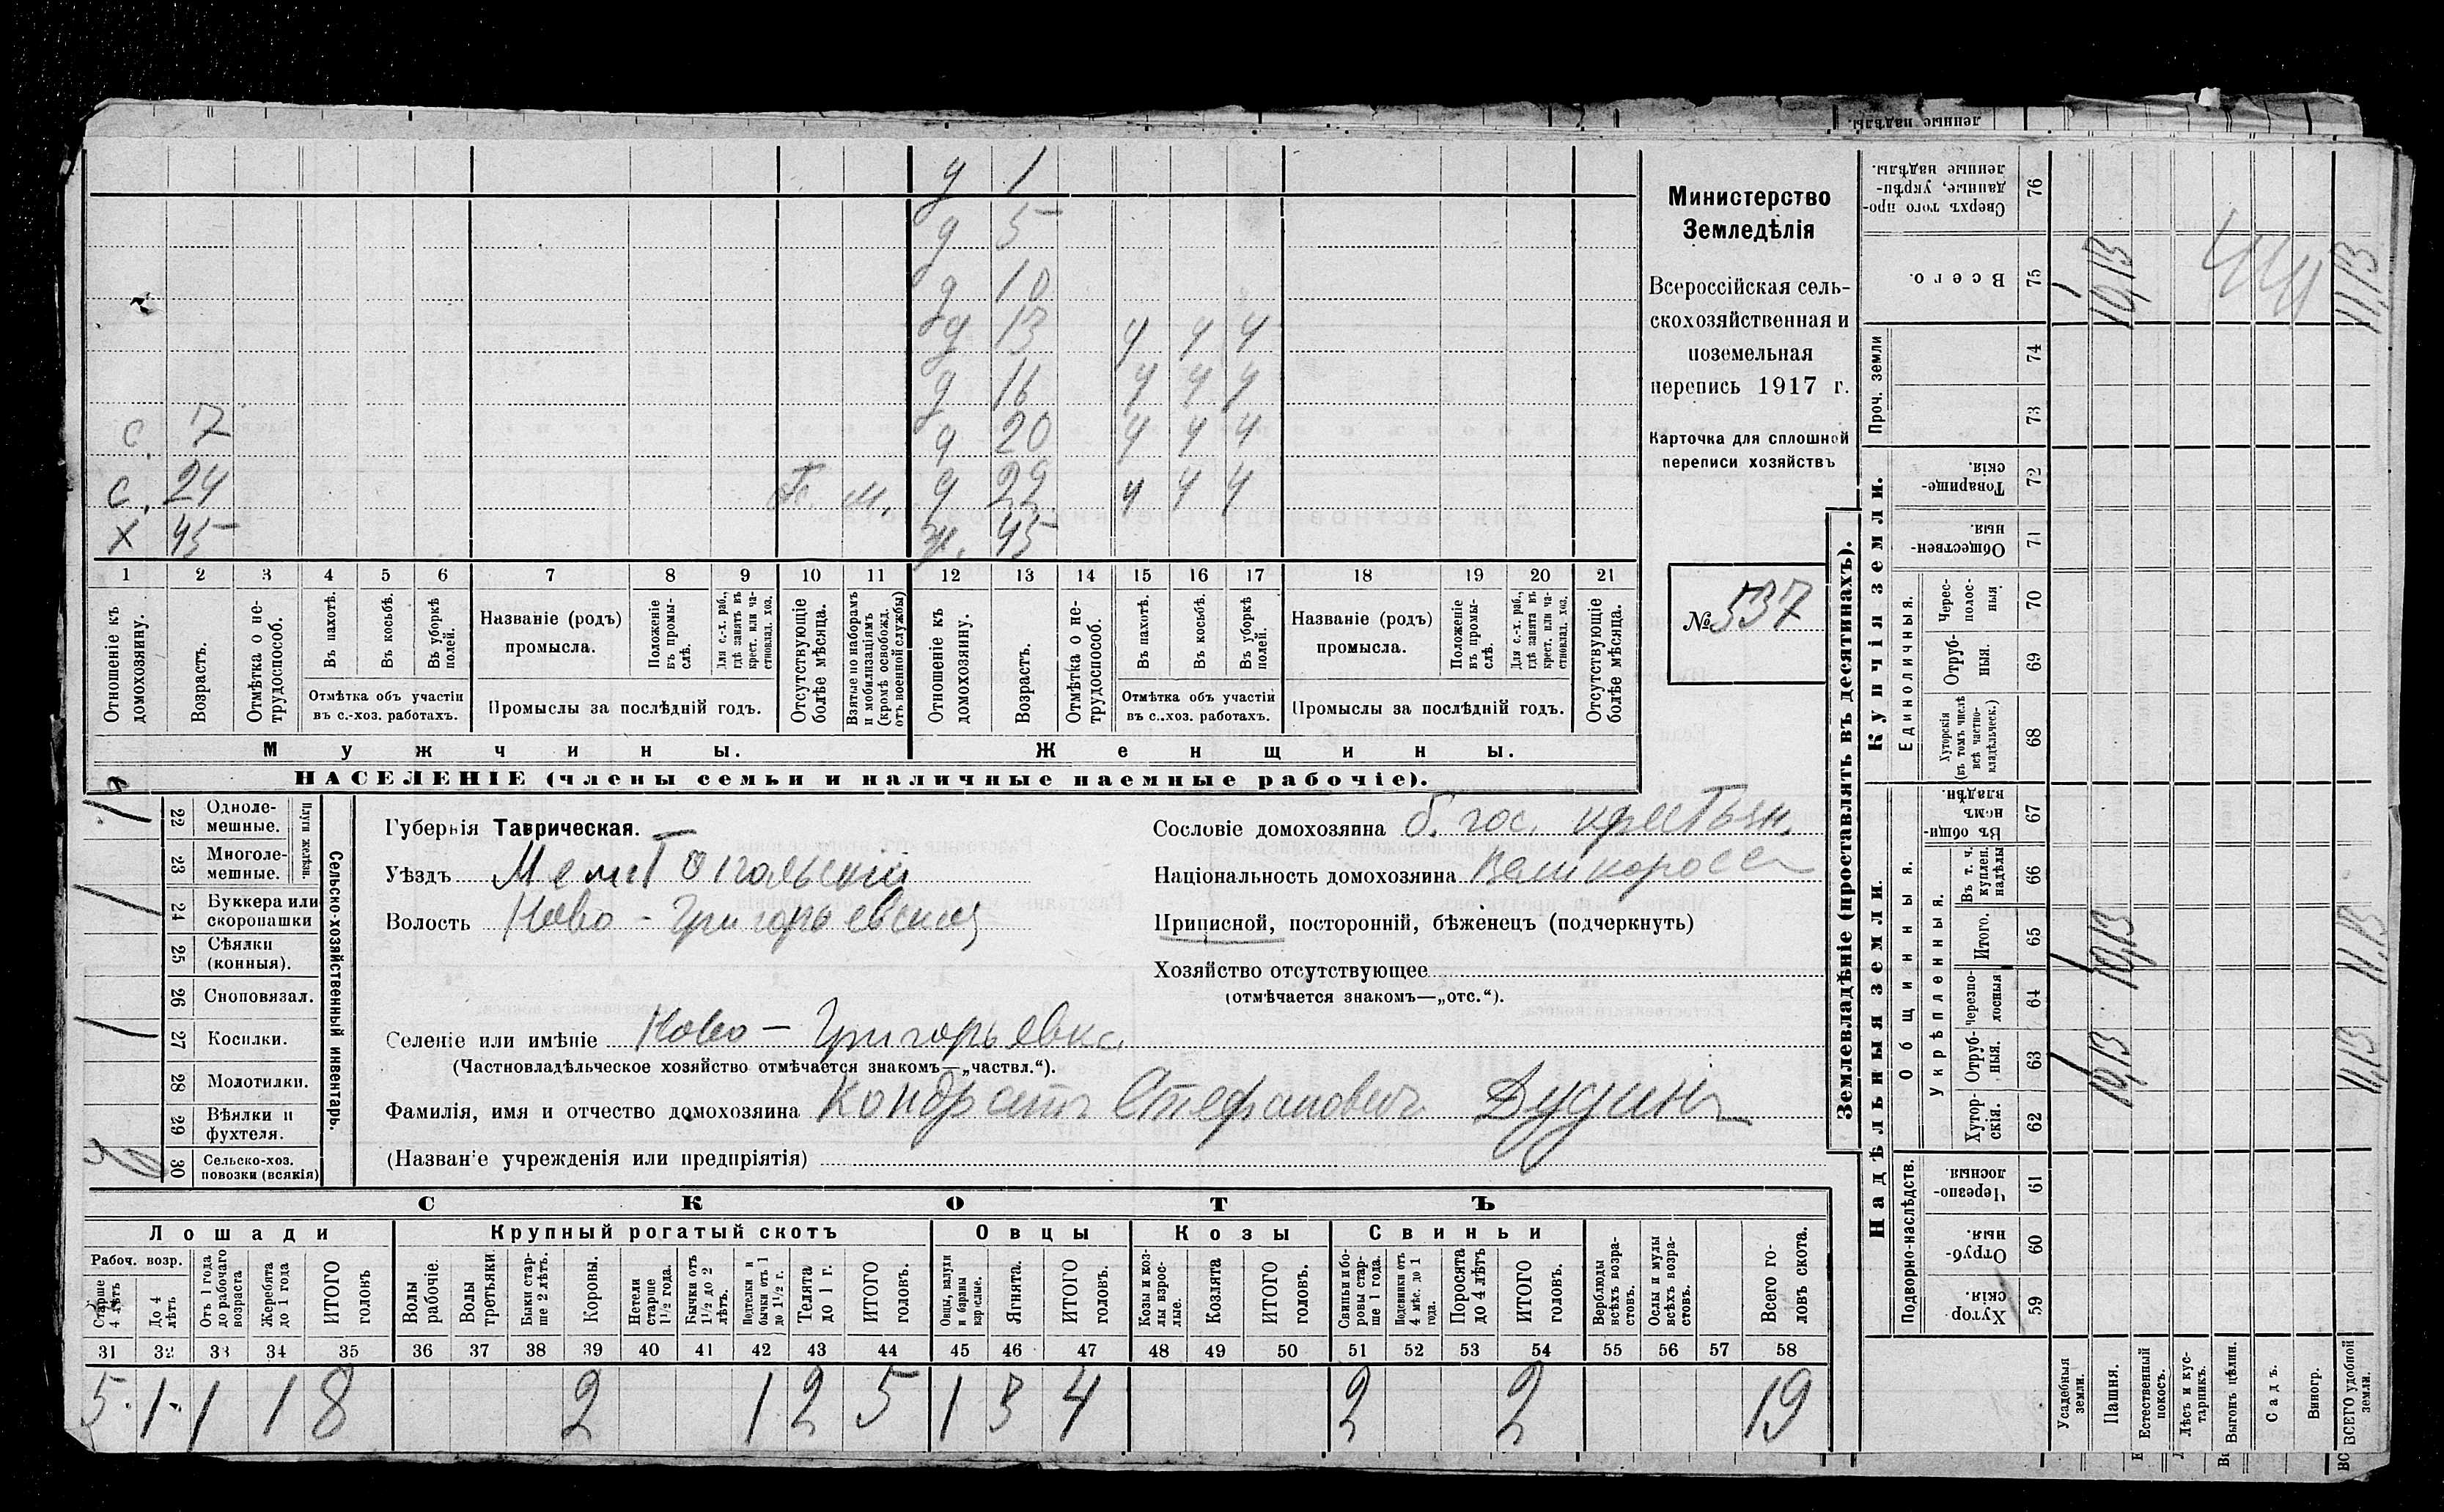 ленные надѣлы.
у 1
д 5
д 10
д 13 ч ч ч
д 16 ч ч ч
с. 17 д 20 ч ч ч
с. 24 м. д 22 ч ч ч
х 45 ж. 45
1 2 3 4 5 6 7 8 9 10 11 12 13 14 15 16 17 18 19 20 21
Отношеніе къ домохозяину.
Возрастъ.
Отмѣтка о нетрудоспособ.
Въ пахотѣ.
Въ косьбѣ.
Въ уборкѣ полей.
Отмѣтка объ участіи
въ с.-хоз. работахъ.
Названіе (родъ)
промысла.
Положеніе въ промыслѣ.
Для с.-х. раб., гдѣ занятъ въ крест. или частновлад. хоз.
Промыслы за послѣдній годъ.
Отсутствующіе болѣе мѣсяца.
Взятые по наборамъ и мобилизаціямъ (кромѣ освобожд. отъ военной службы)
Отношеніе къ домохозяину.
Возрастъ.
Отмѣтка о нетрудоспособ.
Въ пахотѣ.
Въ косьбѣ.
Въ уборкѣ полей.
Отмѣтка объ участіи
въ с.-хоз. работахъ.
Названіе (родъ)
промысла.
Положеніе въ промыслѣ.
Для с.-х. раб., гдѣ занята въ крест. или частновлад. хоз.
Промыслы за послѣдній годъ.
Отсутствующіе болѣе мѣсяца.
Мужчины. Женщины.
НАСЕЛЕНІЕ (члены семьи и наличные наемные рабочіе).
Министерство
Земледѣлія
Всероссійская сель-
скохозяйственная и
поземельная
перепись 1917 г.
Карточка для сплошной
переписи хозяйствъ
№ 537
Сельско-хозяйственный инвентарь.
Плуги желѣзн.
22 Одноле-
мешные.
23 Многоле-
мешные.
24 Буккера или
скоропашки
25 Сѣялки
(конныя).
26 Сноповязал.
27 Косилки.
28 Молотилки.
29 Вѣялки и
фухтеля.
30 Сельско-хоз.
повозки (всякія)
Губернія Таврическая.
Уѣздъ Мелитопольскій
Волость Ново-Григорьевская
Селеніе или имѣніе Ново-Григорьевка
(Частновладѣльческое хозяйство отмѣчается знакомъ—„частвл.“).
Фамилія, имя и отчество домохозяина Кондратъ Стефановичъ Дудинъ
(Названіе учрежденія или предпріятія)
Сословіе домохозяина б. гос. крестьян.
Національность домохозяина Великороссъ
Приписной, посторонній, бѣженецъ (подчеркнуть)
Хозяйство отсутствующее
(отмѣчается знакомъ—„отс.“).
СКОТЪ
Лошади Крупный рогатый скотъ Овцы Козы Свиньи
Рабоч. возр.
Старше 4 лѣтъ
До 4 лѣтъ
Отъ 1 года до рабочаго возраста
Жеребята до 1 года
ИТОГО головъ
Волы рабочіе.
Волы третьяки
Быки старше 2 лѣтъ.
Коровы.
Нетели старше 1½ года.
Бычки отъ 1½ до 2 лѣтъ.
Подтелки и бычки отъ 1 до 1½ г.
Телята до 1 г.
ИТОГО головъ.
Овцы, валухи и бараны взрослые.
Ягнята.
ИТОГО головъ.
Козы и козлы взрослые.
Козлята
ИТОГО головъ.
Свиньи и боровы старше 1 года.
Подсвинки отъ 4 мѣс. до 1 года.
Поросята до 4 лѣтъ
ИТОГО головъ.
Верблюды всѣхъ возрастовъ.
Ослы и мулы всѣхъ возрастовъ.
Всего головъ скота.
31 32 33 34 35 36 37 38 39 40 41 42 43 44 45 46 47 48 49 50 51 52 53 54 55 56 57 58
5 1 1 1 8 2 1 2 5 1 3 4 2 2 19
Землевладѣніе (проставлять въ десятинахъ).
Сверхъ того проданные, укрѣпленные надѣлы. 76
Всего. 75 10,13 11,13
Проч. земли 74
73
Купчія земли.
Товарищескія. 72
Общественныя 71
Единоличныя.
Чересполосныя 70
Отрубныя. 69
Хуторскія (въ томъ числѣ всѣ частновладѣльческ.) 68
Надѣльныя земли.
Общинныя.
Въ общинномъ владѣн. 67
Укрѣпленныя.
Въ т. ч. куплен. надѣлы 66
Итого. 65 10,13 11,13
Черезполосныя 64
Отрубныя. 63 10,13 11,13
Хуторскія. 62
Подворно-наслѣдств.
Черезполосныя 61
Отрубныя 60
Хуторскія. 59
Усадебныя земли.
Пашня.
Естественный покосъ.
Лѣсъ и кустарникъ.
Выгонъ цѣлин.
Садъ.
Виногр.
ВСЕГО удобной земли.